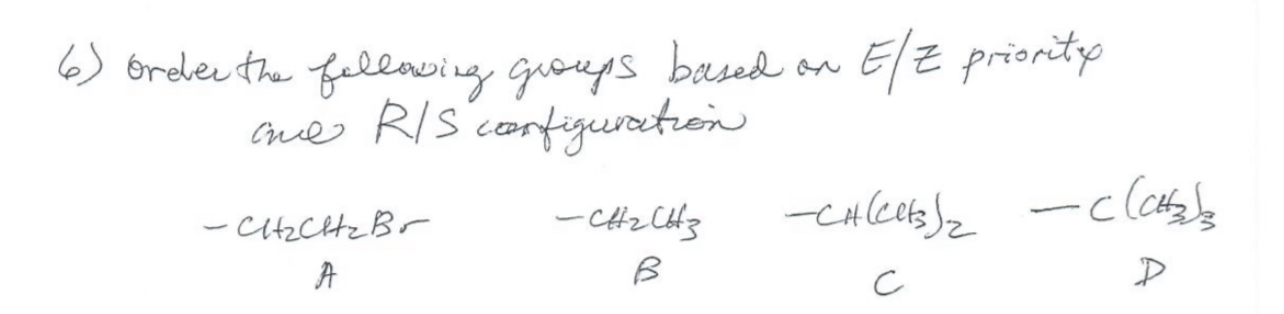 6) Order the following groups based on E/Z priority
and R/S configuration
-CH2CH2Br -CH2CH3 -CH(CH3)2 -C(CH3)3
A B C D